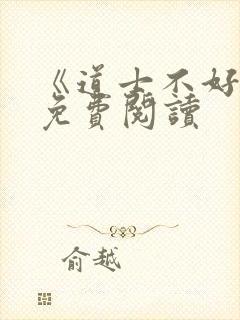 《道士不好
免費閱讀
俞越